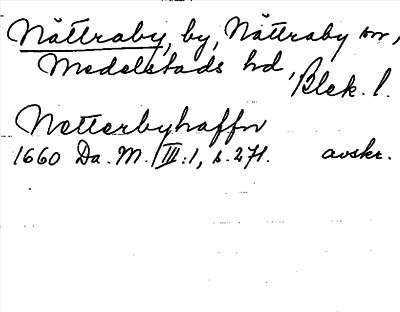 Nättraby, by, Nättraby sn,
Medelstads hd,
Blek. l.
Netterbyhaffn
1660 Da. M. III:1, s. 271. avskr.